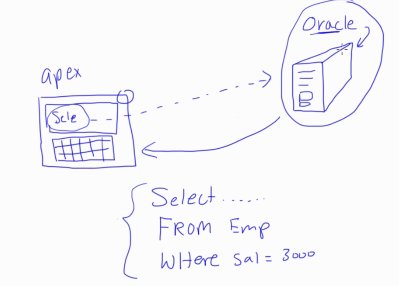 Oracle
apex
Scle
Select......
FROM Emp
WHere sal = 3000